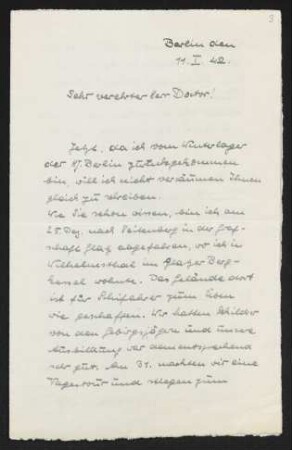 3
Berlin den
11. I. 42.
Sehr verehrter Herr Doctor!
Jetzt, da ich vom Winterlager
der HJ Berlin zurückgekommen
bin, will ich nicht versäumen Ihnen
gleich zu schreiben.
Wie Sie schon wissen, bin ich am
25. Dez. nach Seitenberg in der Graf-
schaft Glaz abgefahren, wo ich in
Wilhelmsthal im Glazer Berg-
kessel wohnte. Das Gelände dort
ist für Schifahrer zum üben
wie geschaffen. Wir hatten Schilehrer
von den Gebirgsjägern und unsere
Ausbildung war dementsprechend
sehr gut. Am 31. machten wir eine
Tagestour und stiegen zum